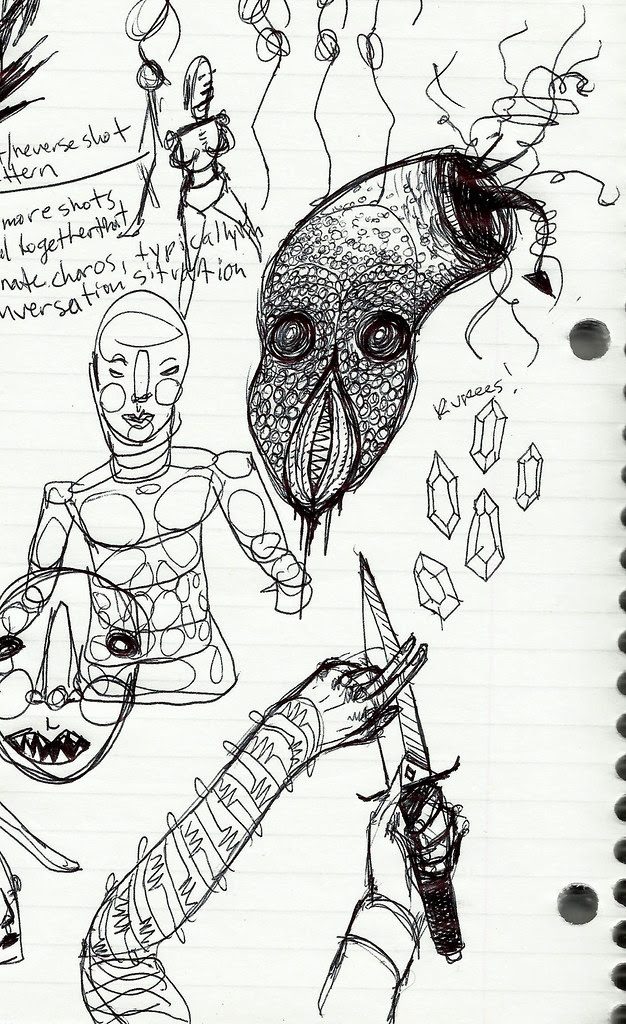 t/reverse shot
ttern
more shots
l togetterthat
nate charos, typically in
nversation situation
Rupees!